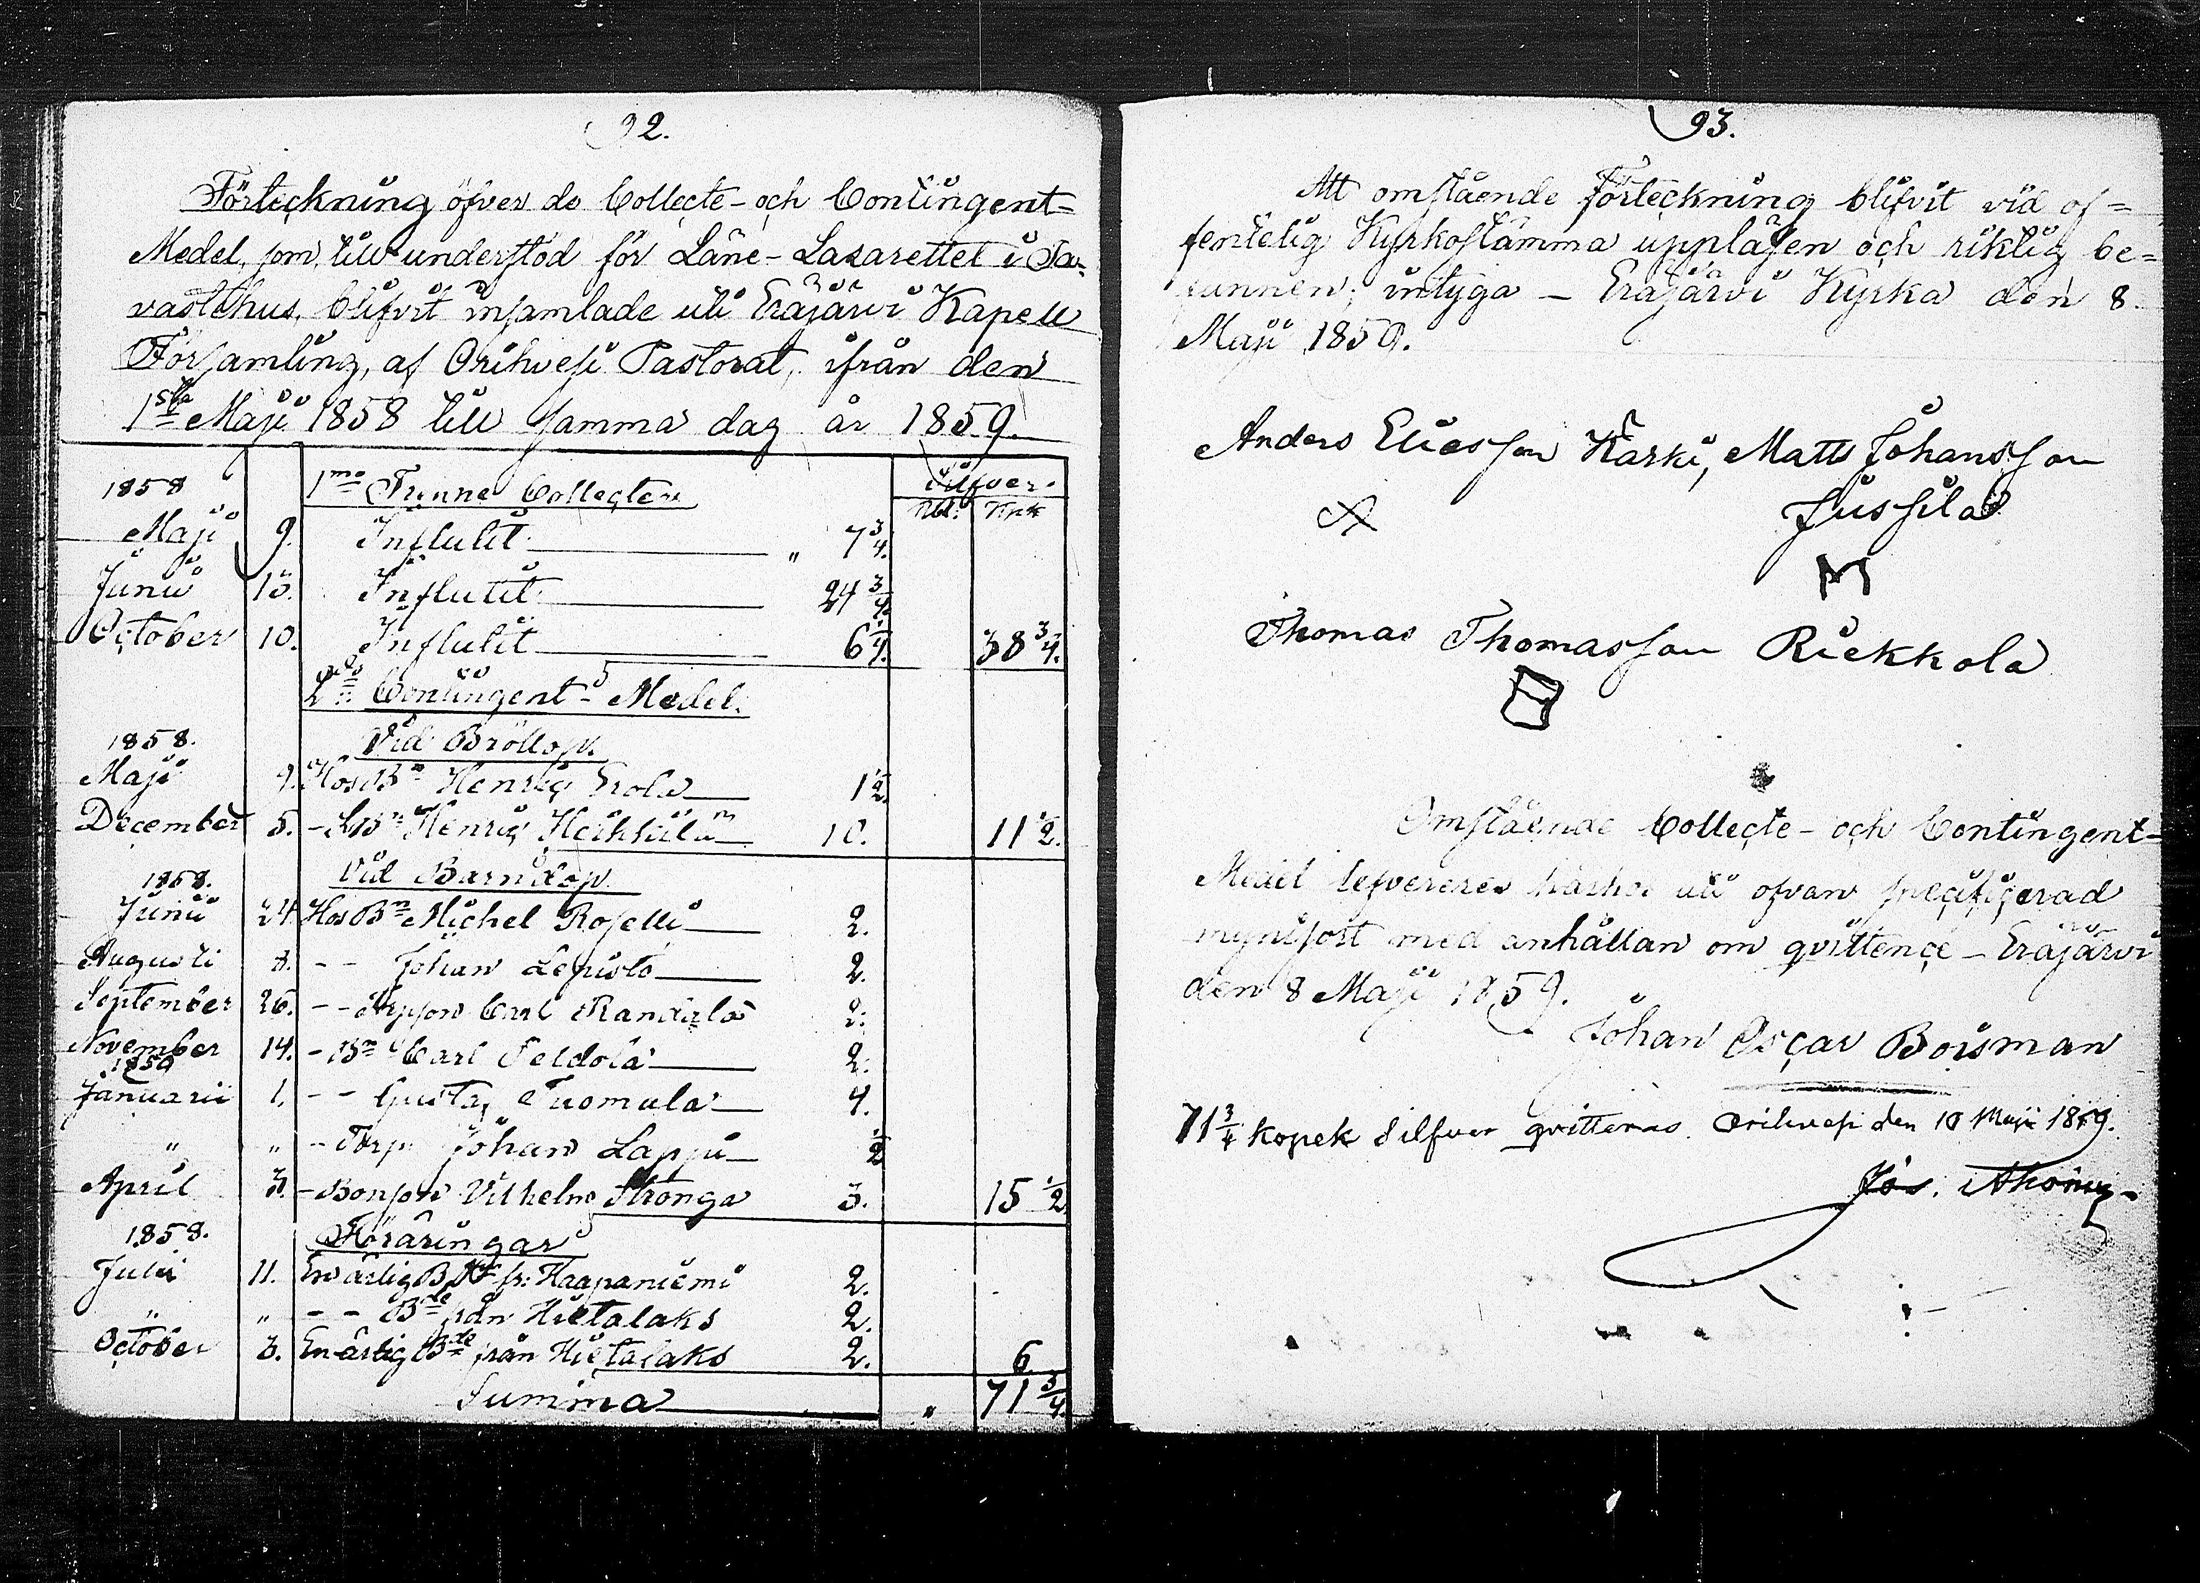 92.
Förteckning öfver de Collecte- och Contingent-
Medel, som till understöd för Läne-Lazarettet i Ta-
vastehus, blifvit insamlade uti Eräjärvi Kapell
Församling, af Orihvesi Pastorat, ifrån den
1sta Maji 1858 till samma dag år 1859.
1858 1mo Trenne Collecter Silfver.
Rbl: Kpk
Maji 9. Influtit " 7 3/4.
Junii 13. Influtit 24 3/4.
October 10. Influtit 6 1/4. 38 3/4.
2do Contingent-Medel.
1858. Vid Bröllop.
Maji 9. Hos Bn Henric Erola 1 1/2.
December 5. - Bn Henric Heikkilä 10. 11 1/2.
1858. Vid Barndop.
Junii 24. Hos Bn Michel Roselli 2.
Augusti 8. - - Johan Lepistö 2.
September 26. - Carl Randala 2.
November 14. - Bn Carl Seldola 2.
1859
Januarii 1. - - Gustaf Tuomula 4.
" " - Torp: Johan Lappu 1/2
April 3. - Bonson Vilhelm Stronga 3. 15 1/2.
1858. Föräringar
Julii 11. En ärlig fr: Haapaniemi 2.
" " - - från Hietalaks 2.
October 3. En ärlig från Hietalaks 2. 6.
Summa " 71 3/4.
93.
Att omstående Förteckning blifvit vid of=
fentelig Kyrkostämma uppläsen och riktig be=
funnen; intyga - Eräjärvi Kyrka den 8.
Maji 1859.
Anders Eliasson Karki, Matts Johansson
Jussila
Thomas Thomasson Riekkola
Omstående Collecte- och Contingent-
Medel lefvereres härhos uti ofvan specificerad
myntsort med anhållan om qvittence - Eräjärvi
den 8 Maji 1859.
Johan Oscar Boisman
71 3/4 kopek Silfver qvitteras. Orihvesi den 10 Maji 1859.
Jos.